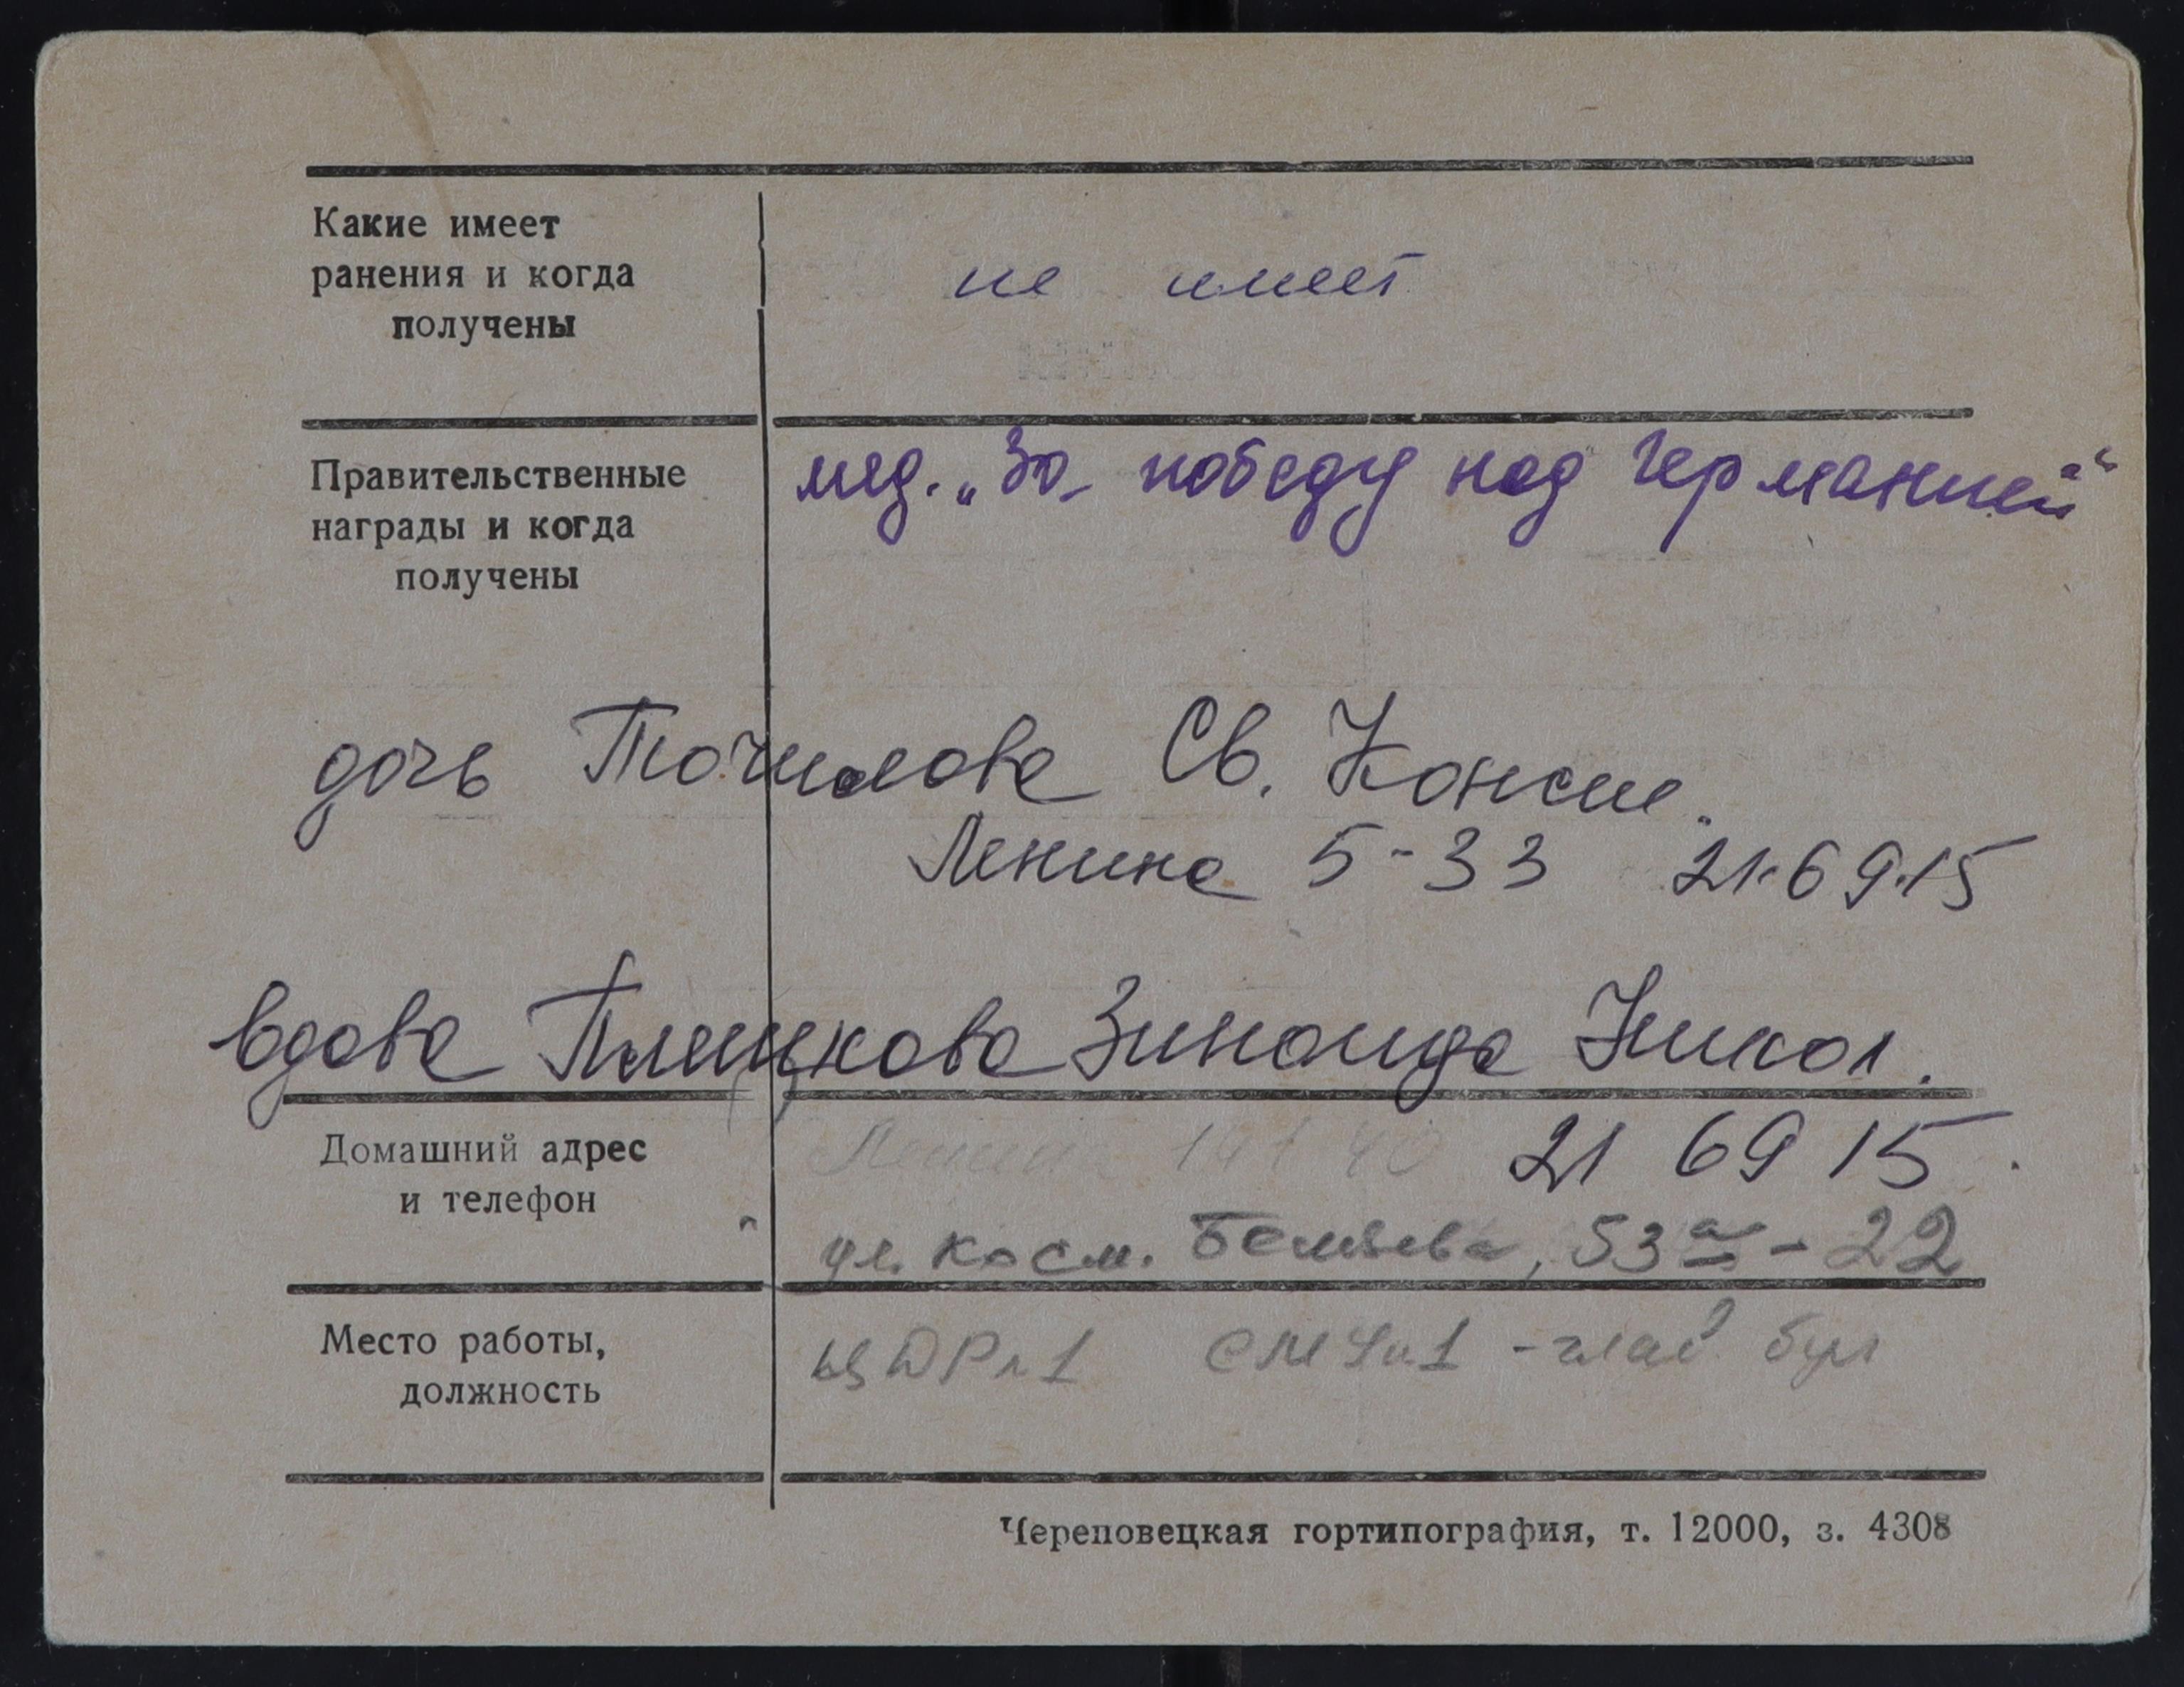 Какие имеет
ранения и когда
получены
не имеет
Правительственные
награды и когда
получены
мед. „За победу над Германией“
дочь Точилова Св. Конст.
Ленина 5-33 21-69-15
вдова Плешкова Зинаида Никол.
Домашний адрес
и телефон
21 69 15
ул. Косм. Беляева, 53а-22
Место работы,
должность
глав. бух
Череповецкая гортипография, т. 12000, з. 4308